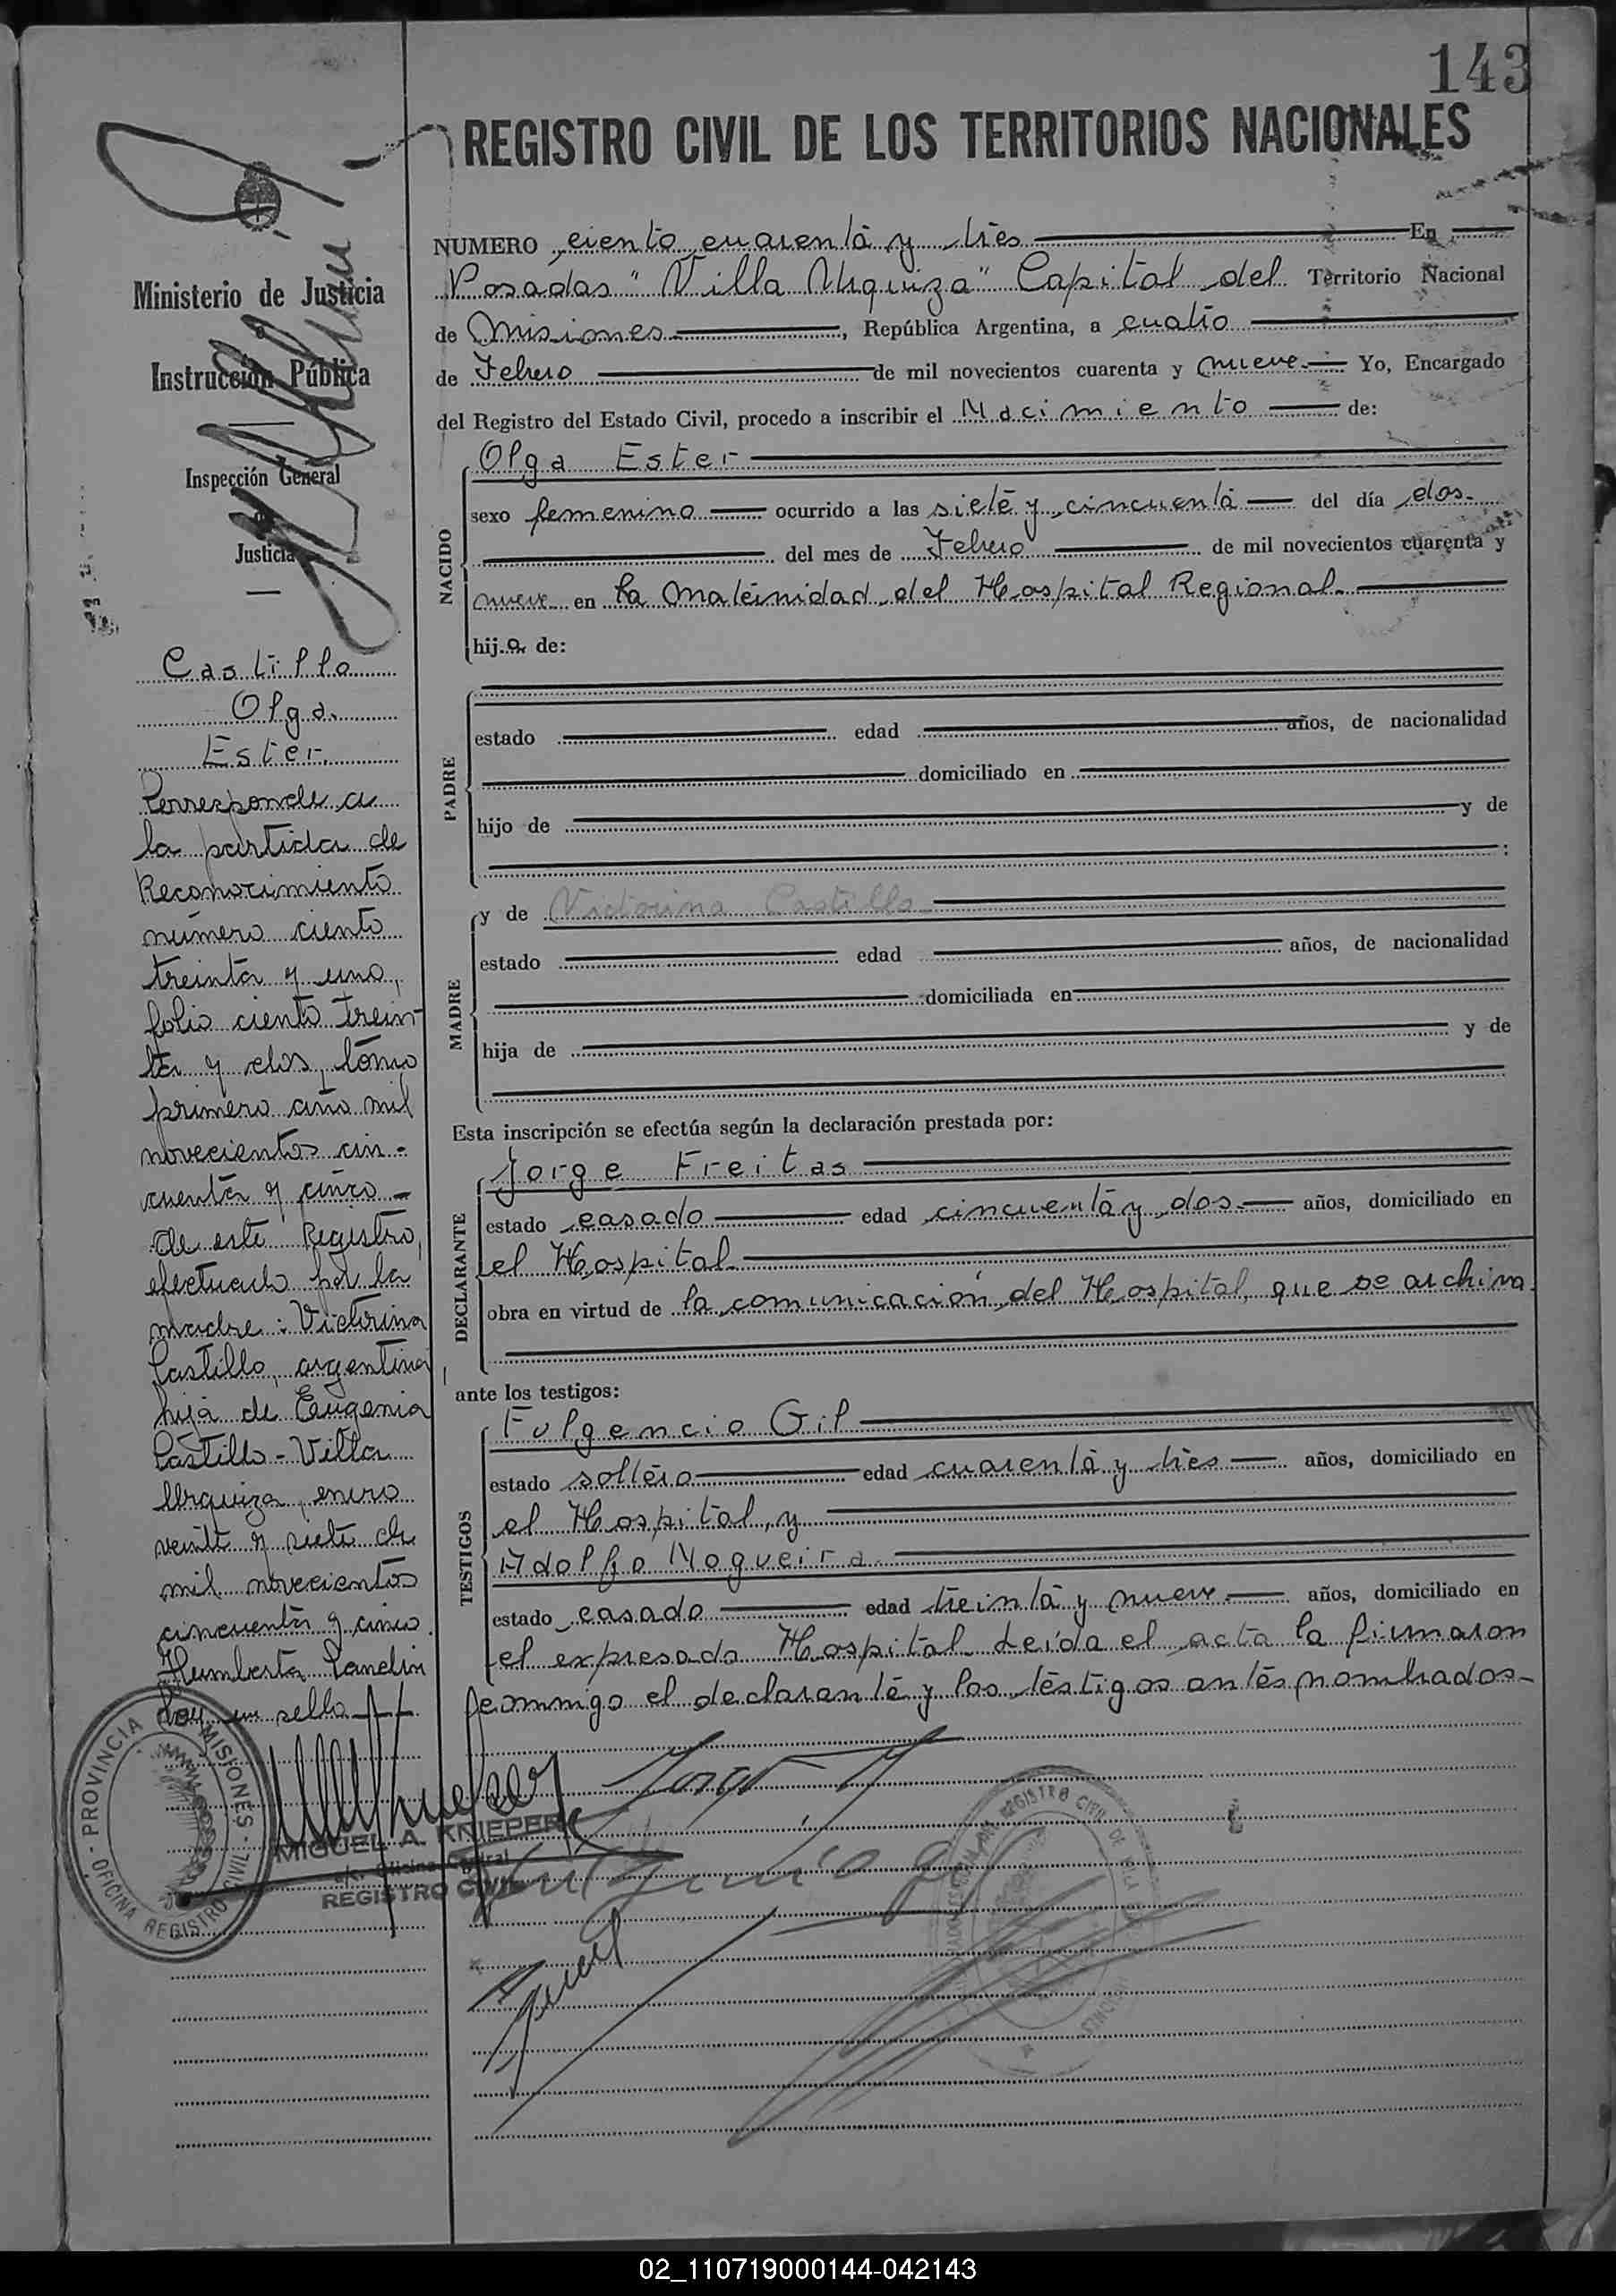 143
REGISTRO CIVIL DE LOS TERRITORIOS NACIONALES
Ministerio de Justicia
e
Instrucción Pública
Inspección General
de
Justicia
Castillo
Olga
Ester.
Corresponde a
la partida de
Reconocimiento
número ciento
treinta y uno,
folio ciento trein-
ta y dos, tomo
primero año mil
novecientos cin-
cuenta y cinco
de este Registro,
efectuado por la
madre: Victorina
Castillo, argentina
hija de Eugenia
Castillo - Villa
Urquiza, enero
veinte y siete de
mil novecientos
cincuenta y cinco.
Humberto
un sello
PROVINCIA DE MISIONES - OFICINA REGISTRO CIVIL -
MIGUEL A. KNIEPER
Oficina Central
REGISTRO CIVIL
NUMERO ciento cuarenta y tres En
Posadas "Villa Urquiza" Capital del Territorio Nacional
de Misiones, República Argentina, a cuatro
de Febrero de mil novecientos cuarenta y nueve. Yo, Encargado
del Registro del Estado Civil, procedo a inscribir el Nacimiento de:
NACIDO
Olga Ester
sexo femenino ocurrido a las siete y cincuenta del día dos
del mes de Febrero de mil novecientos cuarenta y
nueve en la Maternidad del Hospital Regional.
hija de:
PADRE
estado edad años, de nacionalidad
domiciliado en
hijo de y de
:
MADRE
y de Victorina Castillo
estado edad años, de nacionalidad
domiciliada en
hija de y de
Esta inscripción se efectúa según la declaración prestada por:
DECLARANTE
Jorge Freitas
estado casado edad cincuenta y dos. años, domiciliado en
el Hospital
obra en virtud de la comunicación del Hospital, que se archiva.
ante los testigos:
TESTIGOS
Fulgencio Gil
estado soltero edad cuarenta y tres años, domiciliado en
el Hospital, y
Adolfo Nogueira
estado casado edad treinta y nueve años, domiciliado en
el expresado Hospital. Leída el acta la firmaron
conmigo el declarante y los testigos antes nombrados-
02_110719000144-042143